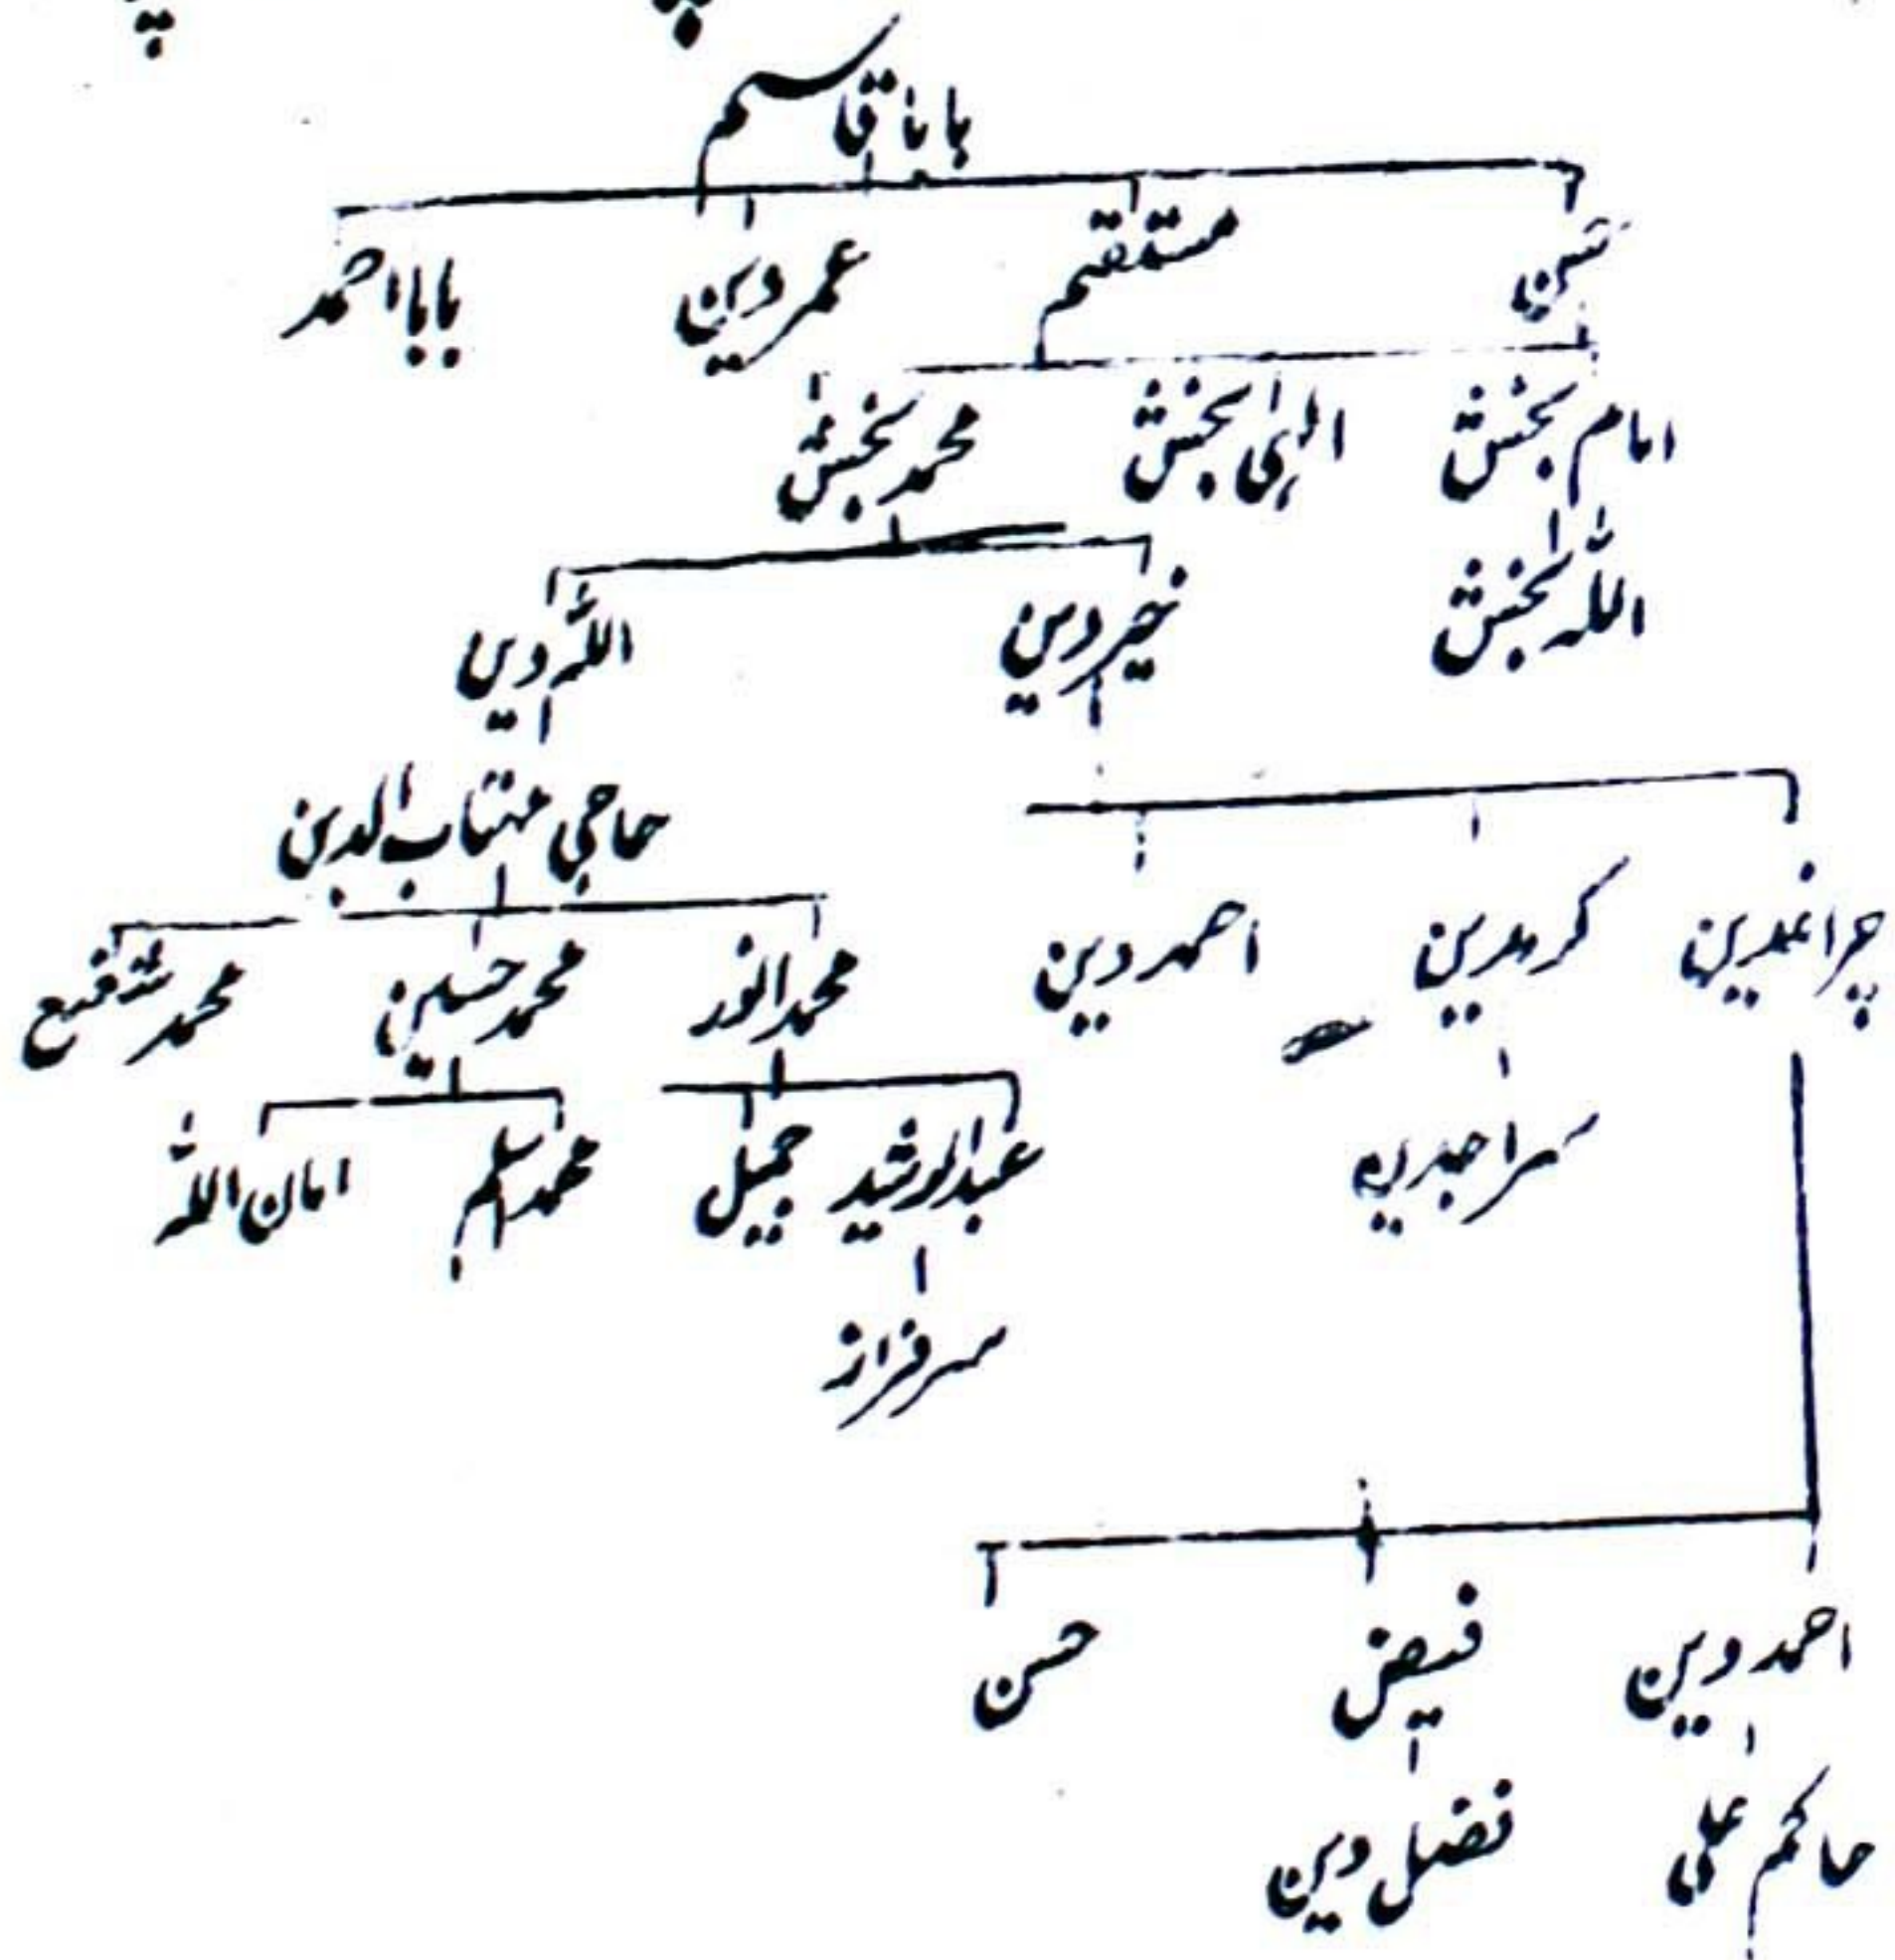 بابا قاسم
مستقیم عمر دین بابا احمد
امام بخش الہی بخش محمد بخش
اللہ بخش خیر دین اللہ دین
حاجی مہتاب الدین
چراغدین کرمدین احمد دین محمد انور محمد حسین محمد شفیع
سراجدین عبدالرشید جمیل محمد اسلم امان اللہ
سرفراز
احمد دین فیض حسن
حاکم علی فضل دین